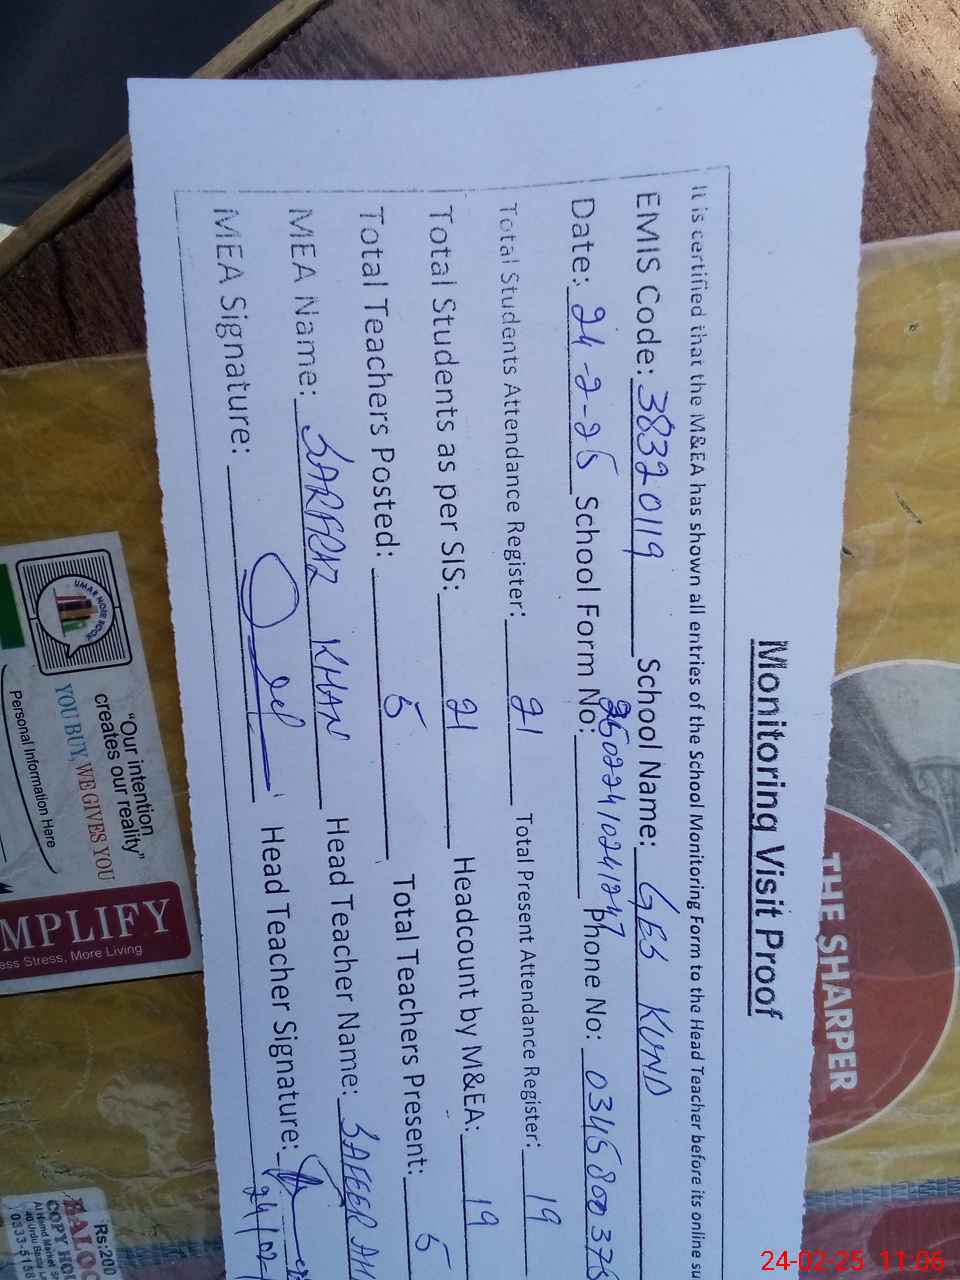 Monitoring Visit Proof
It is certified that the M&EA has shown all entries of the School Monitoring Form to the Head Teacher before its online su
EMIS Code: 38320119 School Name: GES KUND
Date: 24-2-25 School Form No: 25022410241247 Phone No: 03458003
Total Students Attendance Register: 21 Total Present Attendance Register: 19
Total Students as per SIS: 21 Headcount by M&EA: 19
Total Teachers Posted: 5 Total Teachers Present: 5
MEA Name: SARFRAZ KHAN Head Teacher Name: SAFEER AH
MEA Signature: Head Teacher Signature:
24/02
THE SHARPER
UMAR NOTE BOOK
"Our intention
creates our reality"
YOU BUY, WE GIVES YOU
Personal Information Here
MPLIFY
ess Stress, More Living
Rs:200
BALOC
COPY HO
Urdu Baza
0333-5158
24-02-25 11:06